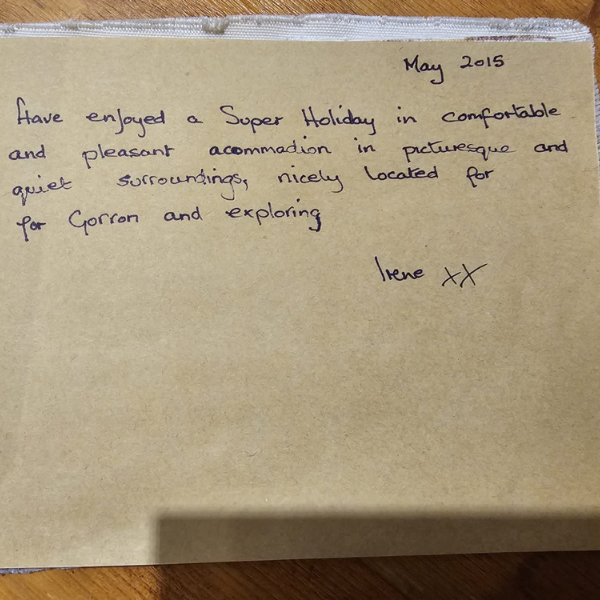 May 2015
Have enjoyed a Super Holiday in comfortable
and pleasant acommadion in picturesque and
quiet surroundings, nicely located for
for Gorron and exploring
Irene XX